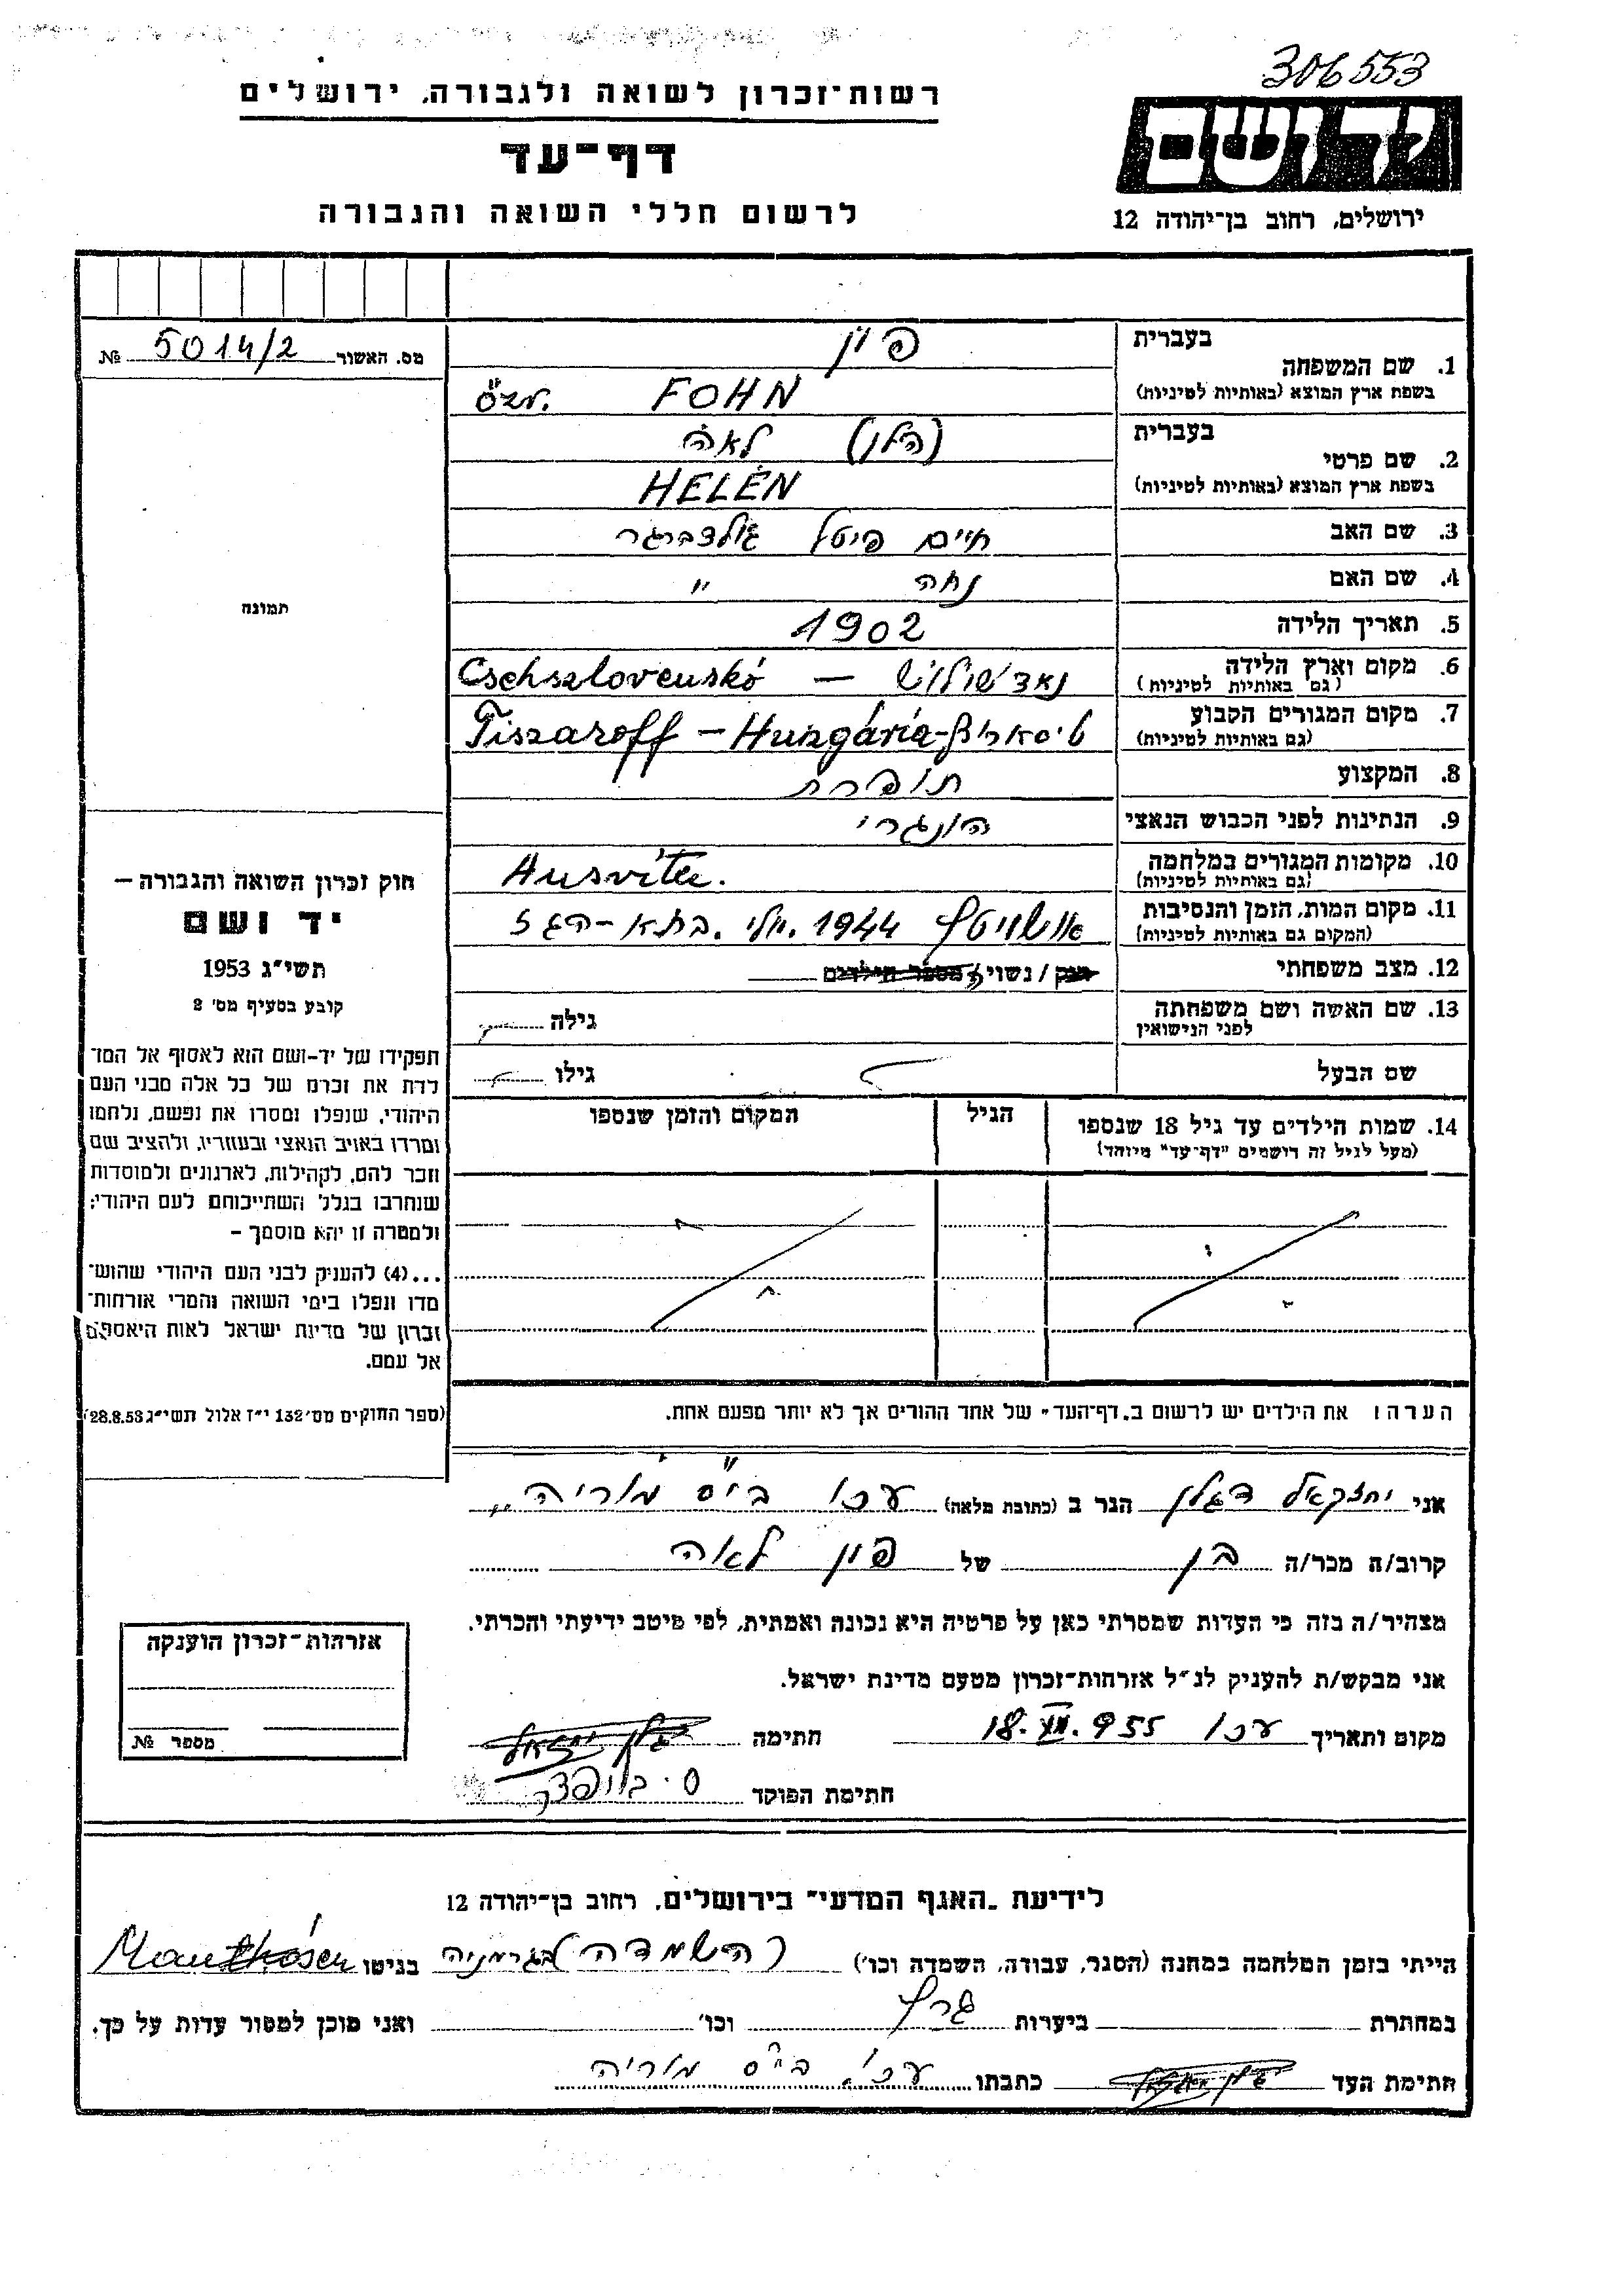 306553
רשות־זכרון לשואה ולגבורה, ירושלים
יד ושם
דף־עד
לרשום חללי השואה והגבורה
ירושלים, רחוב בן־יהודה 12
מס. האשור 5014/2 №
1. שם המשפחה
בעברית פון
בשפת ארץ המוצא (באותיות לטיניות) özv. FOHN
2. שם פרטי
בעברית (הלן) לאה
בשפת ארץ המוצא (באותיות לטיניות) HELÉN
3. שם האב חיים פייטל גולדברגר
4. שם האם נחה "
5. תאריך הלידה 1902
6. מקום וארץ הלידה
(גם באותיות לטיניות) Cschszlovenskó —
7. מקום המגורים הקבוע
(גם באותיות לטיניות) טיסארוף - Tiszaroff – Hungária
8. המקצוע תופרת
9. הנתינות לפני הכבוש הנאצי הונגרי
10. מקומות המגורים במלחמה
(גם באותיות לטיניות) Ausvitz.
11. מקום המות, הזמן והנסיבות
(המקום גם באותיות לטיניות) אושויטץ 1944 יולי. בתא-הגז
12. מצב משפחתי רוק / נשוי/ה מספר הילדים
13. שם האשה ושם משפחתה
לפני הנישואין
גילה
שם הבעל
גילו
14. שמות הילדים עד גיל 18 שנספו
(מעל לגיל זה רושמים "דף־עד" מיוחד)
הגיל
המקום והזמן שנספו
הערה: את הילדים יש לרשום ב„דף־העד" של אחד ההורים אך לא יותר מפעם אחת.
תמונה
חוק זכרון השואה והגבורה —
יד ושם
תשי"ג 1953
קובע בסעיף מס' 2
תפקידו של יד-ושם הוא לאסוף אל המו־
לדת את זכרם של כל אלה מבני העם
היהודי, שנפלו ומסרו את נפשם, נלחמו
ומרדו באויב הנאצי ובעוזריו, ולהציב שם
וזכר להם, לקהילות, לארגונים ולמוסדות
שנחרבו בגלל השתייכותם לעם היהודי;
ולמטרה זו יהא מוסמך —
...(4) להעניק לבני העם היהודי שהוש־
מדו ונפלו בימי השואה והמרי אזרחות־
זכרון של מדינת ישראל לאות היאספם
אל עמם.
(ספר החוקים מס' 132 י"ז אלול תשי"ג 28.8.53)
אני יחזקאל דגלן הגר ב (כתובת מלאה) עכו בי"ס מוריה „
קרוב/ה מכר/ה בן של פון לאה
מצהיר/ה בזה כי העדות שמסרתי כאן על פרטיה היא נכונה ואמתית, לפי מיטב ידיעתי והכרתי.
אני מבקש/ת להעניק לנ"ל אזרחות־זכרון מטעם מדינת ישראל.
מקום ותאריך עכו 18. XII. 955 חתימה
חתימת הפוקד
אזרחות־זכרון הוענקה
מספר №
לידיעת „האגף המדעי" בירושלים, רחוב בן־יהודה 12
הייתי בזמן המלחמה במחנה (הסגר, עבודה, השמדה וכו') השמדה בגרמניה בגיטו Mauthósen
במחתרת ביערות וכו' ואני מוכן למסור עדות על כך.
חתימת העד כתבתו עכו, בי"ס מוריה